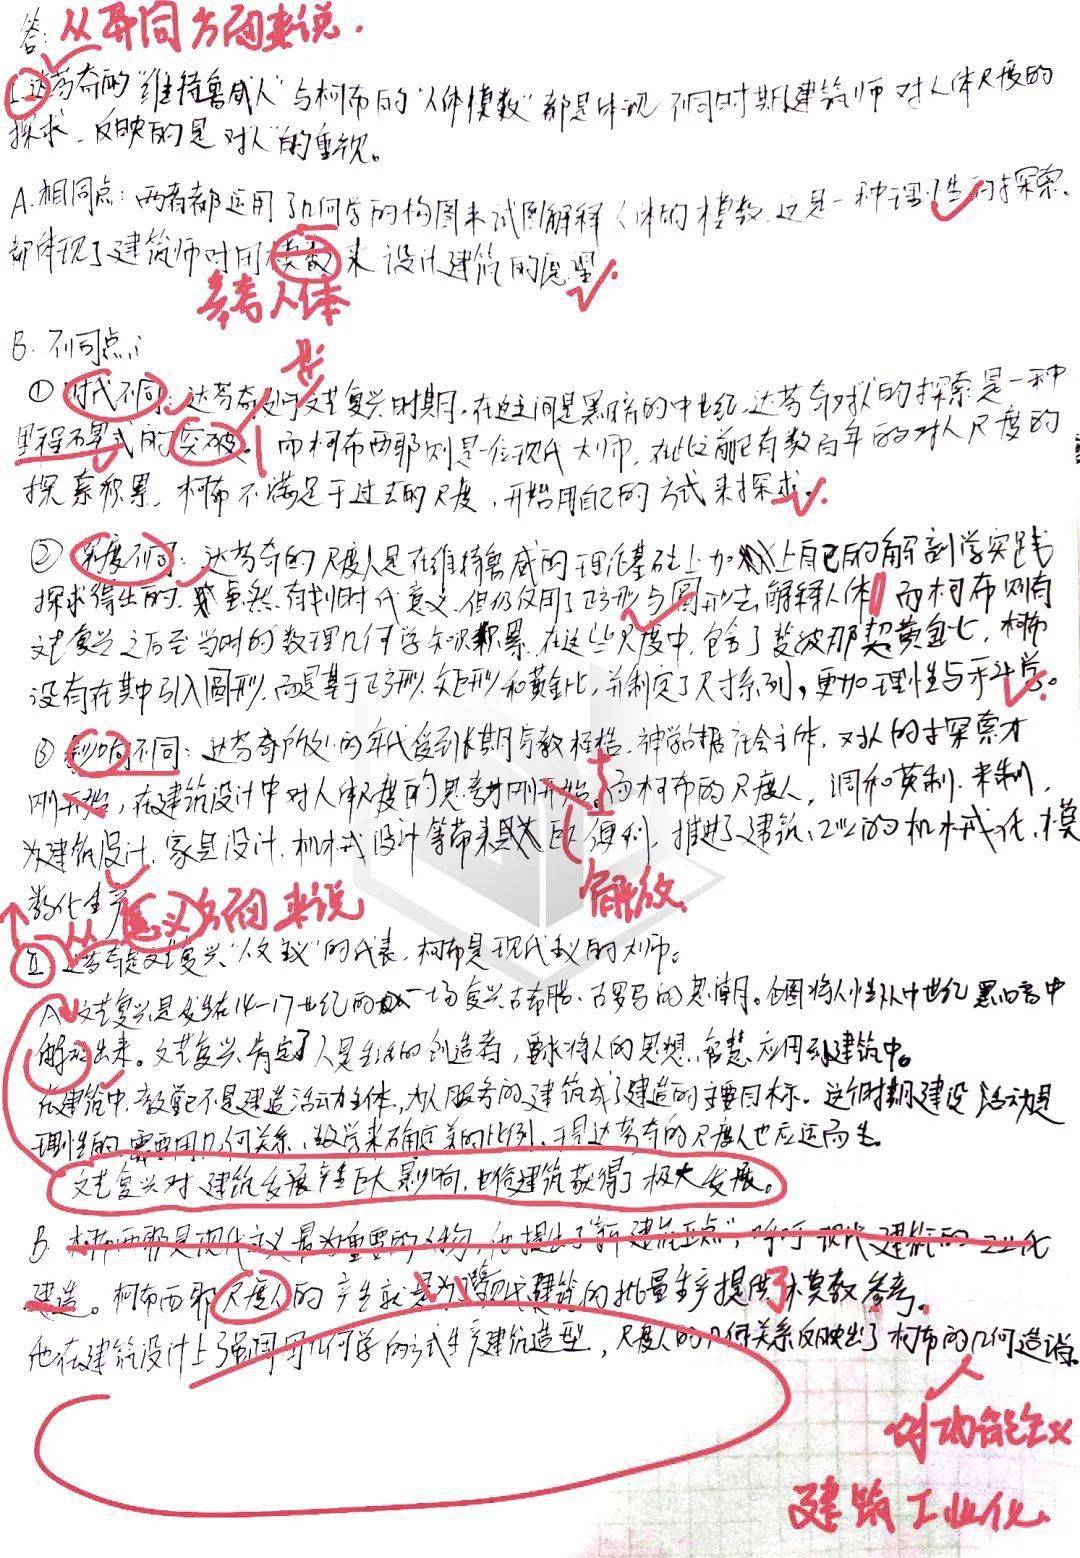 答:从异同方面来说.
I.达芬奇的"维特鲁威人"与柯布的"人体模数"都是体现不同时期建筑师对人体尺度的
探求,反映的是对"人"的重视。
A.相同点:两者都运用了几何学的构图来试图解释人体的模数.这是一种理性的探索.
都体现了建筑师对用模数来设计建筑的愿望.
参考人体
B.不同点:
①时代不同:达芬奇处于文艺复兴时期.在这之间是黑暗的中世纪.达芬奇对人的探索是一种
里程碑式的突破。而柯布西耶则是一位现代大师.在此之前已有数百年的对人尺度的
探索积累.柯布不满足于过去的尺度,开始用自己的方式来探求.
②深度不同:达芬奇的尺度人是在维特鲁威的理论基础上加上自己的解剖学实践
探求得出的.虽然有划时代意义.但仍仅用了正方形与圆形去解释人体 而柯布则有
文艺复兴之后至当时的数理几何学知识积累.在这些尺度中,包含了斐波那契黄金比,柯布
没有在其中引入圆形.而是基于正方形.矩形和黄金比,并制定了尺寸系列,更加理性与科学。
③影响不同:达芬奇所处的年代受到长期宗教桎梏.神学占据社会主体,对人的探索才
刚开始,在建筑设计中对人体尺度的思考才刚开始。而柯布的尺度人,调和英制.米制,
为建筑设计.家具设计.机械设计等带来巨大便利,推进了建筑、工业的机械化、模
数化生产
解放
从意义方面来说
II 达芬奇是文艺复兴"人文主义"的代表,柯布是现代主义的大师。
A.文艺复兴是发生在14-17世纪的一场复兴古希腊.古罗马的思潮。企图将人性从中世纪黑暗中
解放出来。文艺复兴肯定了人是生活的创造者,要求将人的思想、智慧.应用到建筑中。
在建筑中,教堂已不是建造活动主体,为人服务的建筑成了建造的主要目标。这个时期建设活动是
理性的.需要用几何关系、数学来确定美的比例.于是达芬奇的尺度人也应运而生。
文艺复兴对建筑发展产生巨大影响,也使建筑获得了极大发展。
B.柯布西耶是现代主义最为重要的人物,他提出了"新建筑五点",呼吁现代建筑的工业化
建造。柯布西耶尺度人的产生就是为现代建筑的批量生产提供了模数参考。
他在建筑设计上强调用几何学的方式生产建筑造型,尺度人的几何关系反映出了柯布的几何造诣。
对功能主义
建筑工业化.